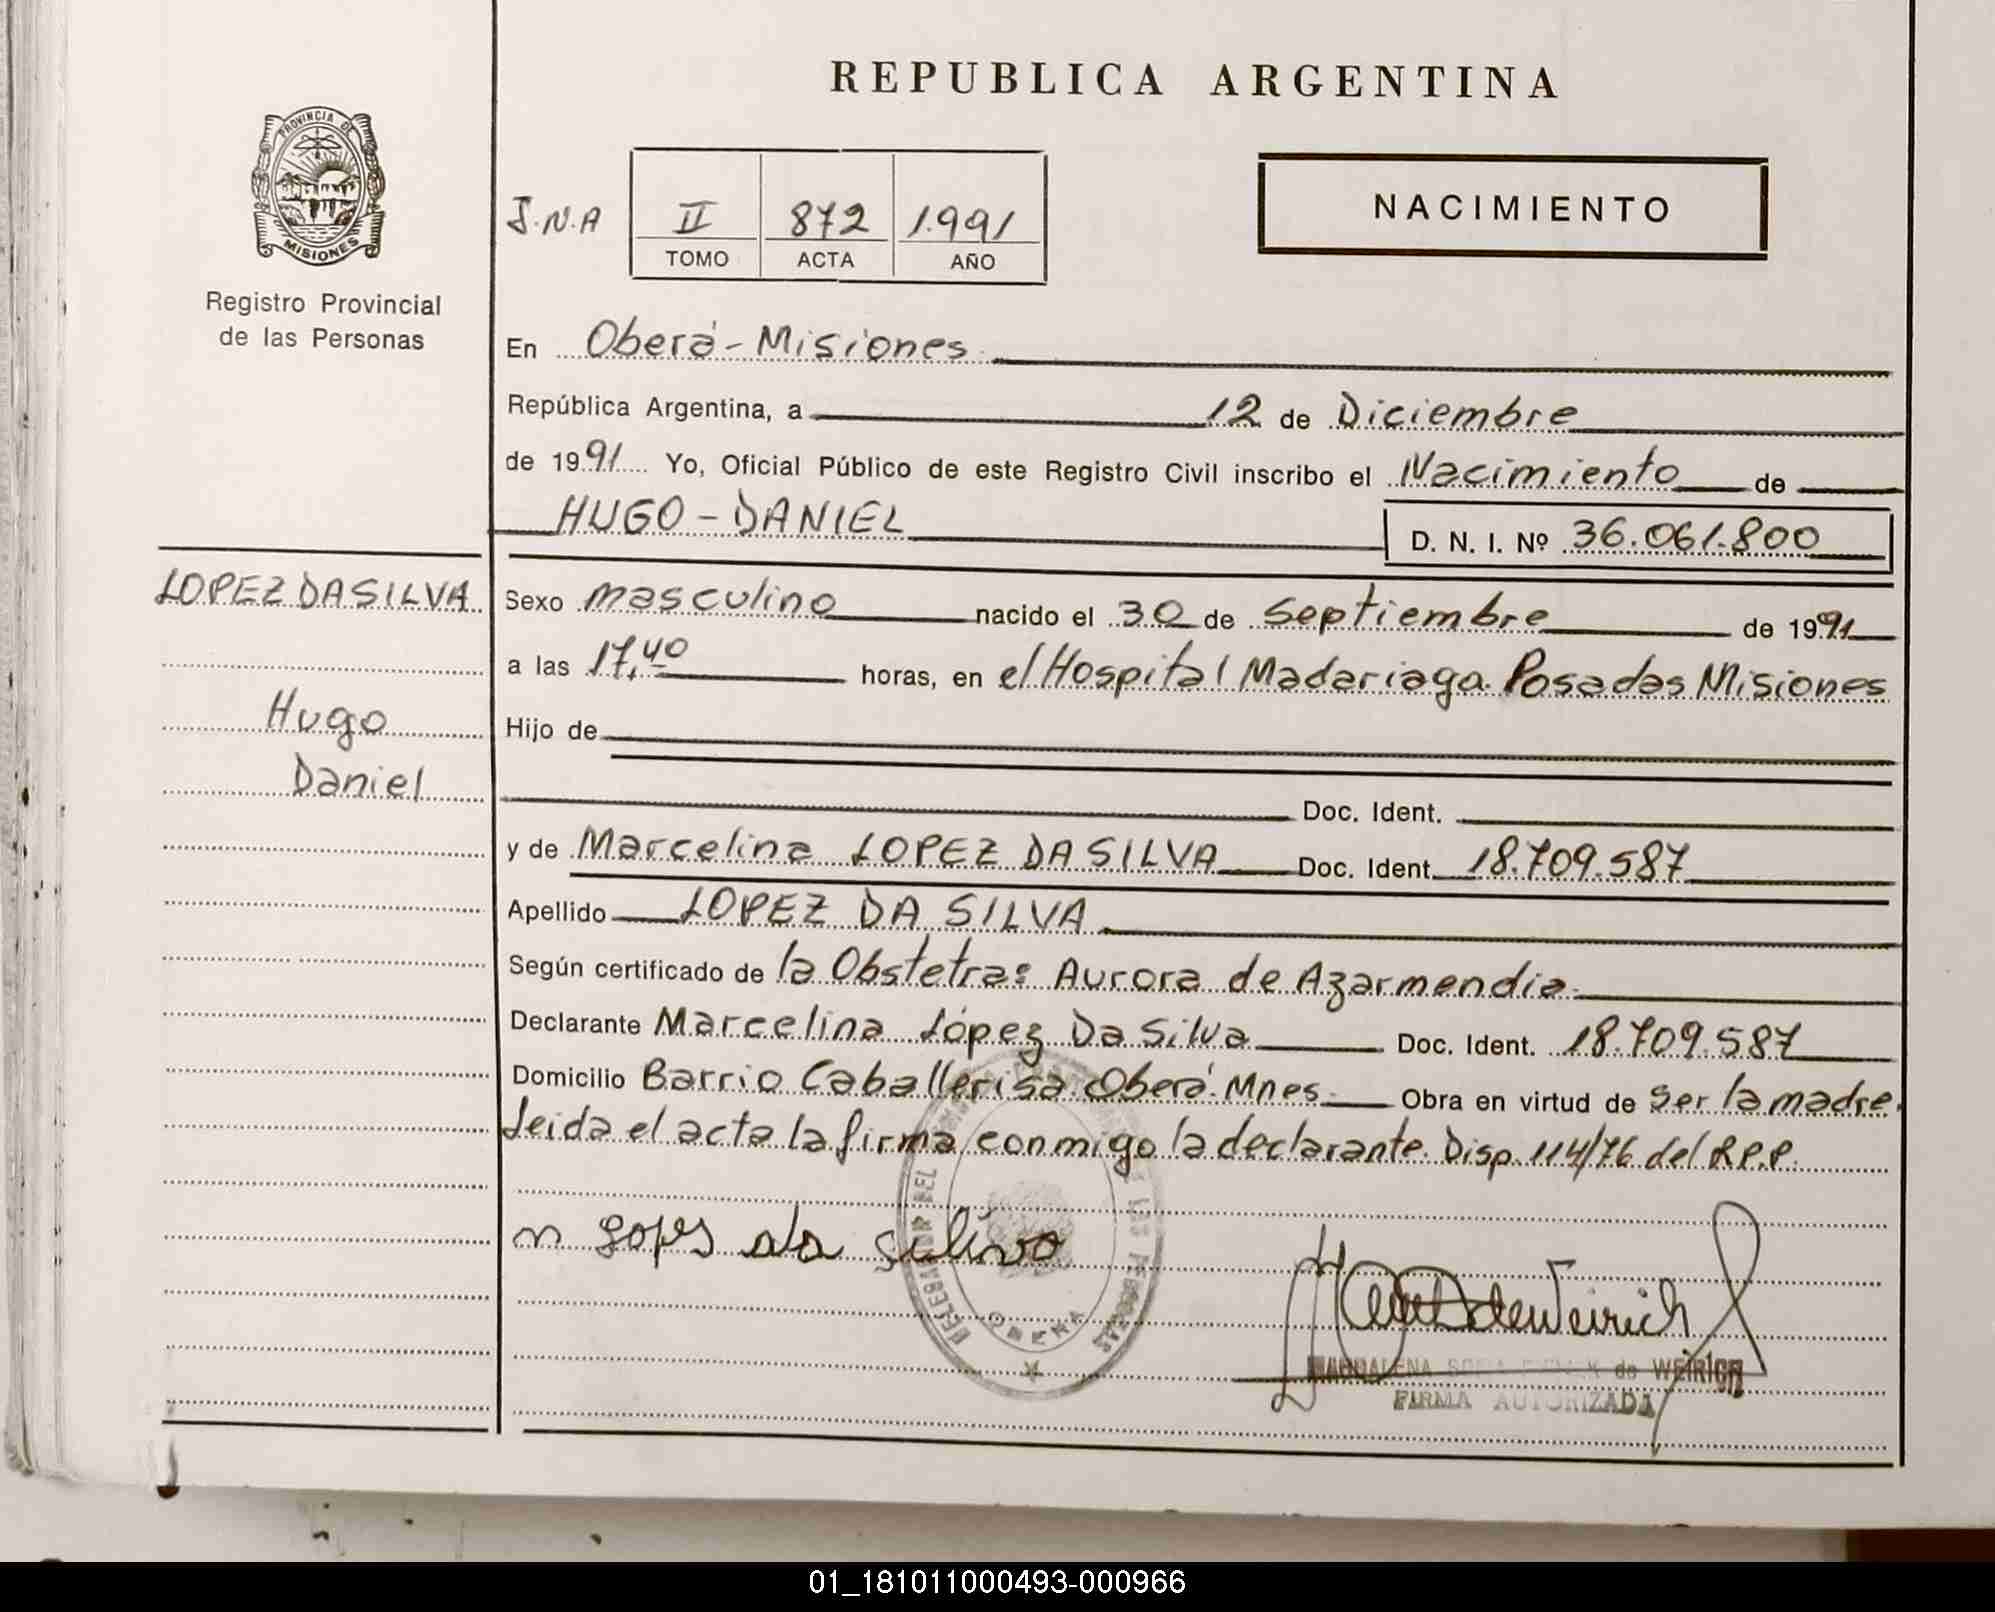 REPUBLICA ARGENTINA
PROVINCIA DE
MISIONES
Registro Provincial
de las Personas
J.N.A II 872 1.991
TOMO ACTA AÑO
NACIMIENTO
En Oberá - Misiones.
República Argentina, a 12 de Diciembre
de 1991 Yo, Oficial Público de este Registro Civil inscribo el Nacimiento de
HUGO - DANIEL D. N. I. Nº 36.061.800
LOPEZ DA SILVA
Hugo
Daniel
Sexo masculino nacido el 30 de Septiembre de 1991
a las 17,40 horas, en el Hospital Madariaga. Posadas Misiones
Hijo de
Doc. Ident.
y de Marcelina LOPEZ DA SILVA Doc. Ident. 18.709.587
Apellido LOPEZ DA SILVA
Según certificado de la Obstetra: Aurora de Azarmendia.
Declarante Marcelina López Da Silva Doc. Ident. 18.709.587
Domicilio Barrio Caballerisa. Oberá. Mnes. Obra en virtud de Ser la madre.
Leida el acta la firma conmigo la declarante. Disp. 114/76 del R.P.P.
m Lopes da silva
OBERA
de Weirich
MAGDALENA de WEIRICH
FIRMA AUTORIZADA
01_181011000493-000966